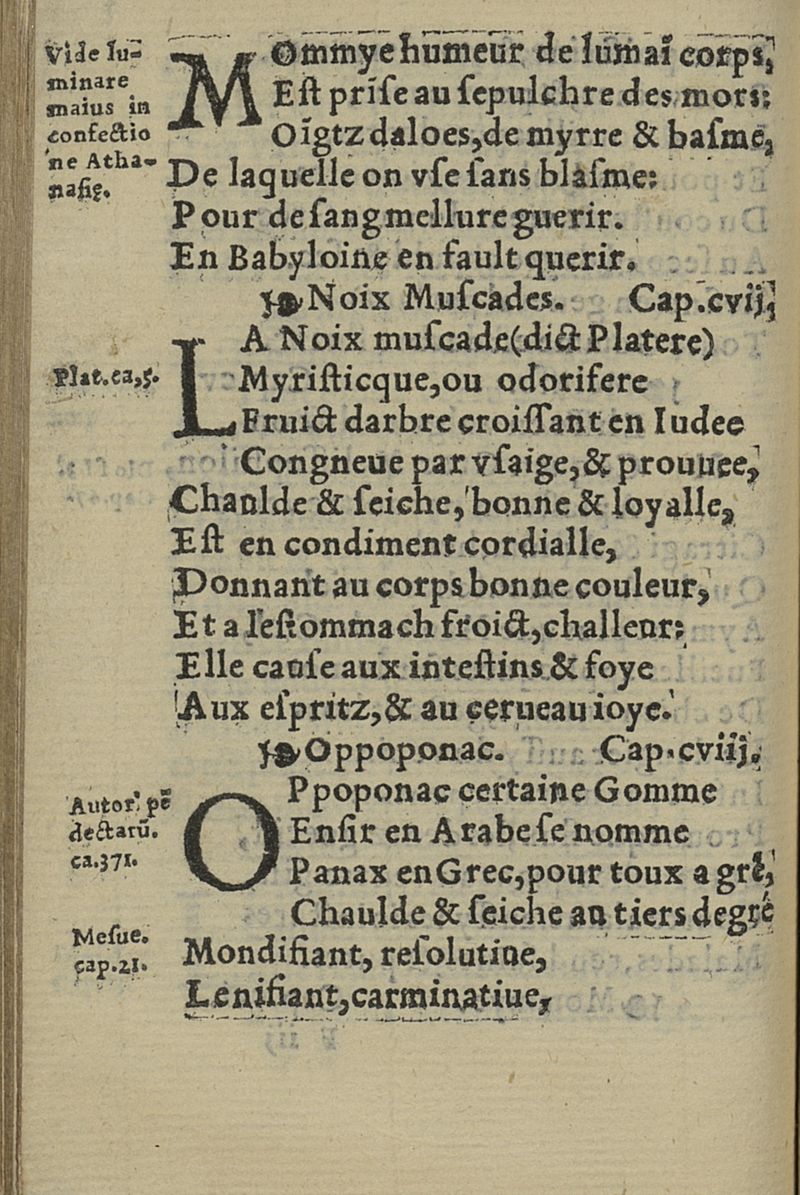 Vide lu-
minare
maius in
confectio
ne Atha-
nasię.
MOmmye humeur de lumaī corps,
Est prīse au sepulchre des mors:
Oīgtz daloes, de myrre & basme,
De laquelle on vse sans blasme:
Pour de sang mellure guerir.
En Babyloine en fault querir.
Noix Muscades. Cap.cvij.
LA Noix muscade(dict Platere)
Plat.ca,5.
Myristicque,ou odorifere
Fruict darbre croissant en Iudee
Congneue par vsaige,& prouuee,
Chaulde & seiche, bonne & loyalle,
Est en condiment cordialle,
Donnant au corps bonne couleur,
Et a lestommach froict,challeur:
Elle cause aux intestins & foye
Aux espritz,& au cerueau ioye.
Oppoponac. Cap.cviij.
OPpoponac certaine Gomme
Autor. pē
dectarū.
ca.371.
Ensir en Arabe se nomme
Panax en Grec,pour toux a gré,
Chaulde & seiche au tiers degré
Mesue.
cap.21.
Mondifiant, resolutiue,
Lenifiant,carminatiue,